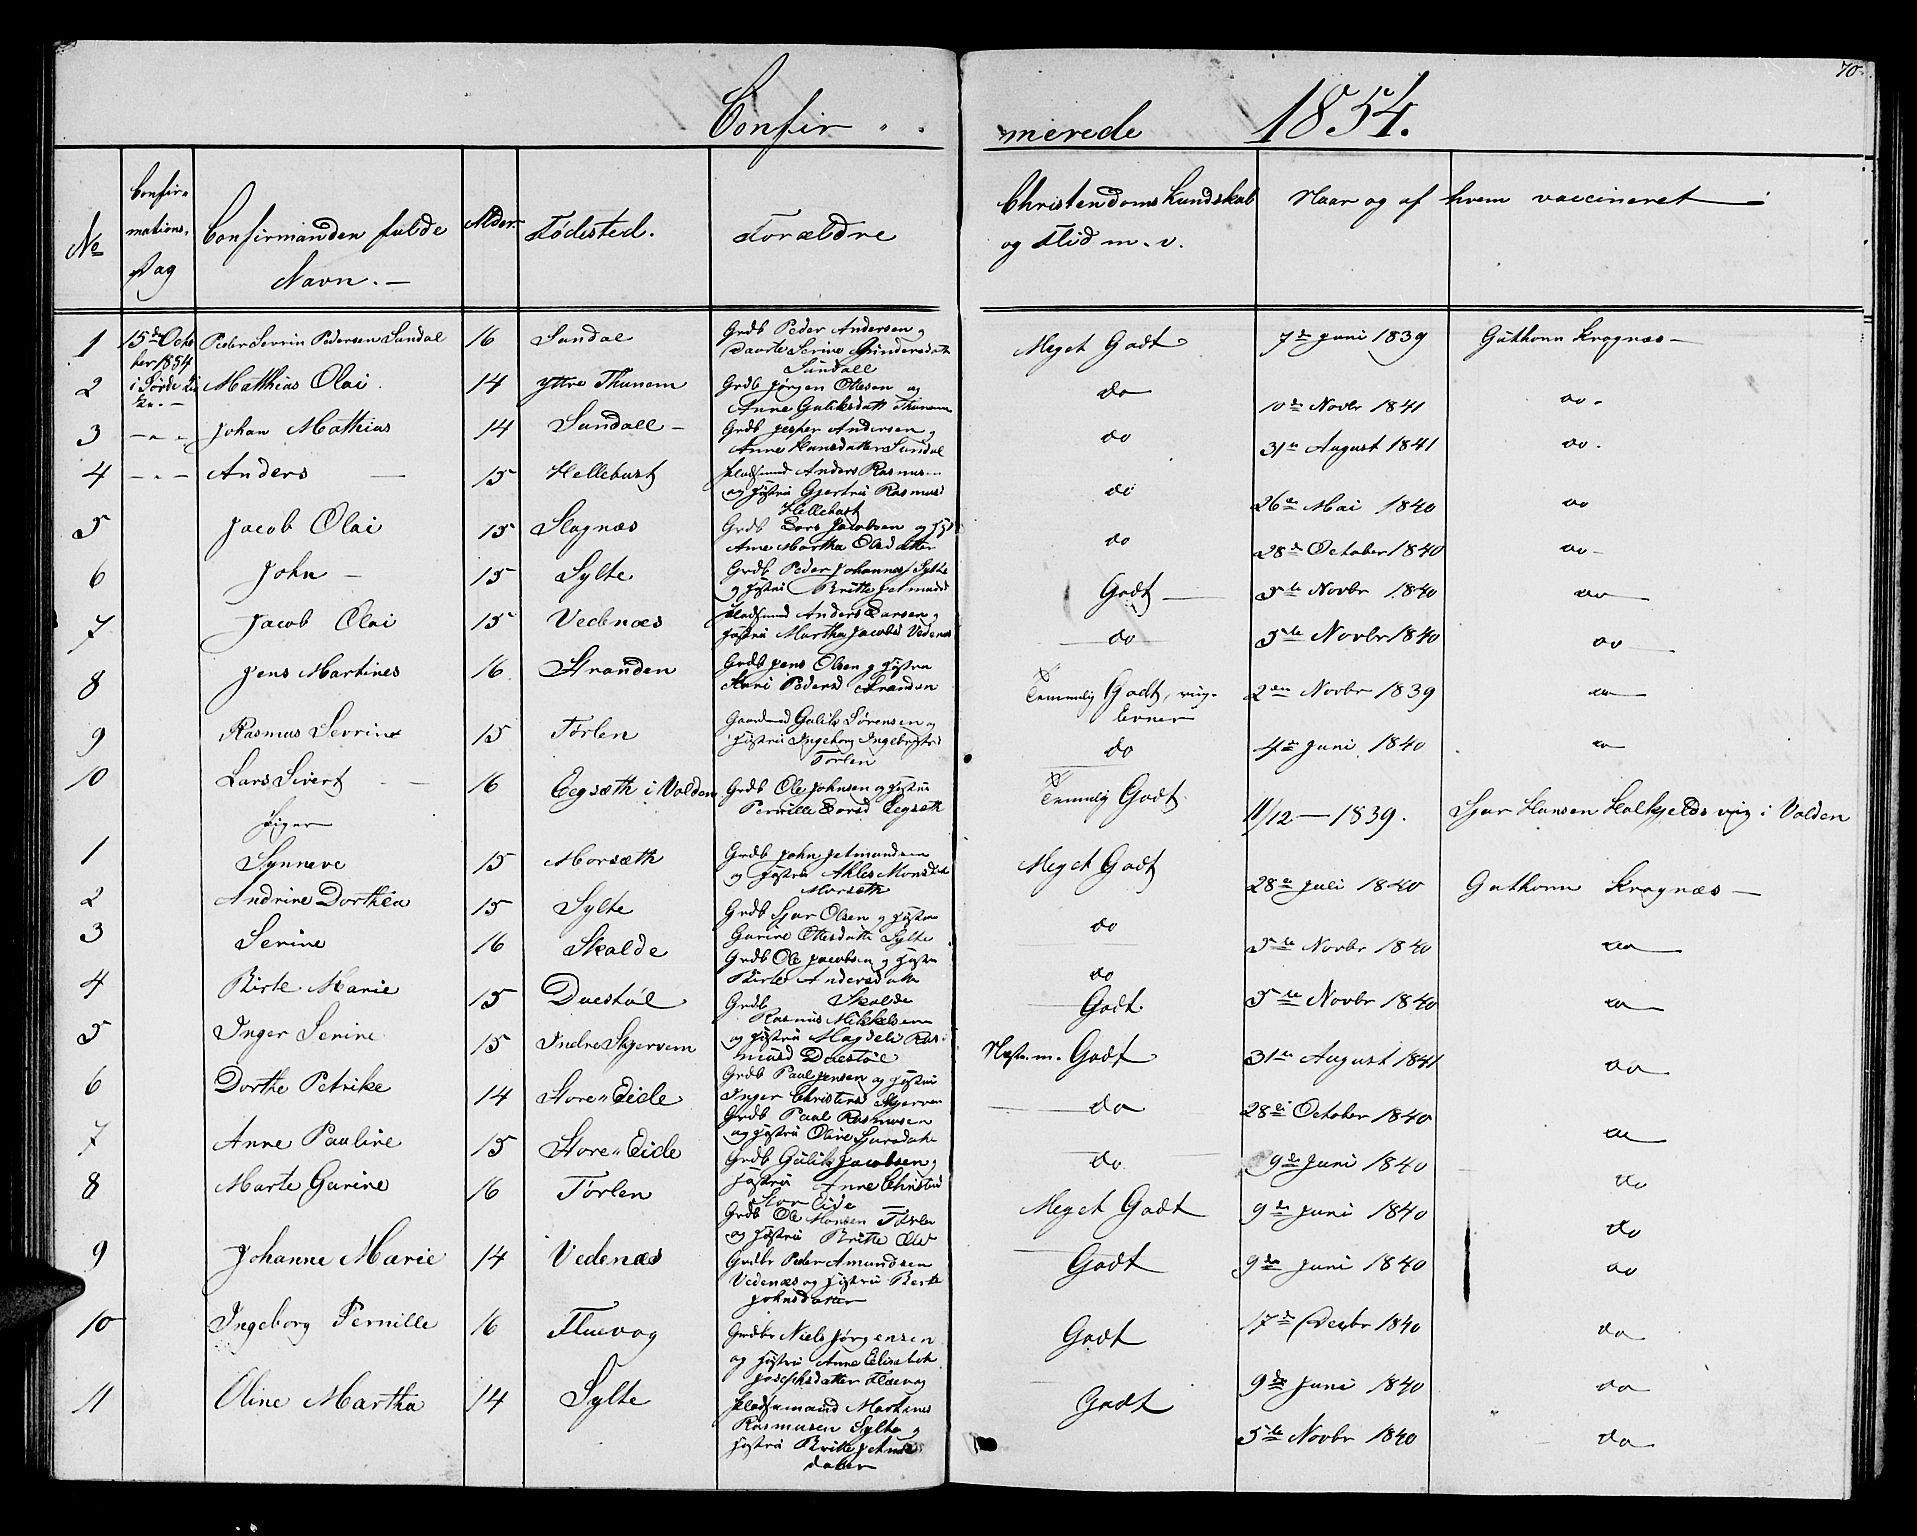 70.
Confir - - merede 1854.
No Confirmations Dag Confirmanden fulde Navn. Alder Födested. Forældre Christendoms Kundskab og Flid m. v. Naar og af hvem vaccineret
1 15de October 1854 Peder Sevrin Pedersen Sundal 16 Sundal Grdb Peder Andersen og Daarte Serine Gundersdatt Sundall Meget Godt 7de Juni 1839 Guthorm Kragnæs
2 i Sörde Matthias Olai. 14 yttre Thunem Grdb Jörgen Ottesen og Anne Guliksdatt Thunem do 10de Novbr 1841 do.
3 - " - Johan Mathias 14 Sundall Grdb Jesper Andersen og Anne Hansdatter Sundal do 31te August 1841 do.
4 - " - Anders 15 Hellebust Pladsmand Anders Rasmus og Hustru Gjertru Rasmusd Hellebust do 26de Mai 1840 do
5 Jacob Olai 15 Slagnæs Grdb Lars Jacobsen og Hst Ane Martha Olsdatter do 28de October 1840 do
6 John 15 Sylte Grdb Peder Johannes Sylte og Hustru Britte Jetmundsd Godt 5te Novbr 1840 do
7 Jacob Olai 15 Vedenæs Pladsmand Anders Larsen og Hustru Martha Jacobsd Vedenæs do 5te Novbr 1840 do
8 Jens Martines 16 Stranden Grdb Jens Olsen og Hustru Kari Pedersd Stranden Temmelig Godt, ring. Evner 2den Novbr 1839 do
9 Rasmus Sevrine 15 Förlen Gaardmd Gulik Sörensen og Hustru Ingeborg Ingebrigtsd Förlen do 4de Juni 1840 do
10 Lars Sivert 16 Eegsæth i Volden Grdb Ole Johnsen og Hustru Pernille Larsd Eegsæth Temmelig Godt 11/12 - 1839. Sjur Hansen Kalkjeldsvig i Volden
Piger
1 Synneve 15 Morsæth Grdb John Jetmundsen og Hustru Ahles Monsdt Morsæth Meget Godt 28de Juli 1840 Guthorm Kragnæs
2 Andrine Dorthea 15 Sylte Grdb Sjur Olsen og Hustru Gurine Ottesdatt Sylte do 5te Novbr 1840 do
3 Serine 16 Skalde Grdb Ole Jacobsen og Hustru Birte Andersdatt Skalde do 5te Novbr 1840 do
4 Birte Marie 15 Duestöl Grdb Rasmus Mikkelsen og Hustru Magdeli Rasmusd Duestöl Godt 31te August 1841 do
5 Inger Serine 15 Indre Skjervem Grdb Paul Jensen og Hustru Inger Christensd Skjerven Næst. m. Godt 28de October 1840 do
6 Dorthe Petrike 14 Store-Eide Grdb Paul Rasmusen og Hustru Oline Sjursdatt do 9de Juni 1840 do
7 Anne Pauline 15 Store-Eide Grdb Gulik Jacobsen, Hustru Anne Christensd Stor Eide do 9de Juni 1840 do
8 Marte Gurine 16 Förlen Grdb Ole Monsen Förlen og Hustru Britte Olsd Meget Godt 9de Juni 1840 do
9 Johanne Marie 14 Vedenæs Grdbr Peder Amundsen Vedenæs og Hustru Berte Johnsdatter Godt 17de Decbr 1840 do
10 Ingeborg Pernille 16 Fluevog Grdbr Niels Jörgensen og Hustru Anne Elisabeth Josephsdatter Fluevog Godt 9de Juni 1840 do
11 Oline Martha 14 Sylte Pladsemand Martines Rasmusen Sylte og Hustru Britte Jetmundsdatter Godt 5te Novbr 1840 do